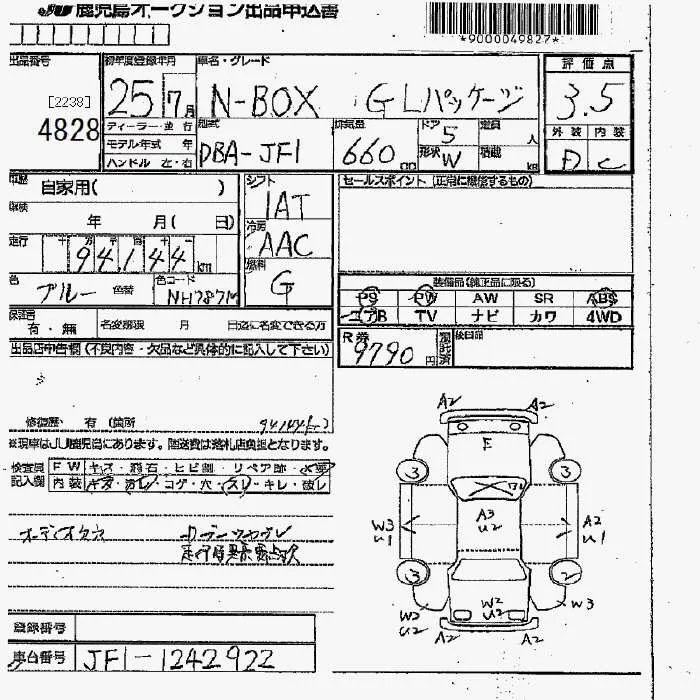 JU 鹿児島オークション出品申込書
*9000049827*
出品番号
[2238]
4828
初年度登録年月
25 7 月
車名・グレード
N-BOX G Lパッケージ
評価点
3.5
外装 内装
D C
ディーラー・並行
モデル年式 年
ハンドル 左・右
型式
DBA-JF1
排気量
660 cc
ドア 5
形状 W
定員 人
積載 kg
車歴 自家用( )
車検 年 月( 日)
走行 十 万 千 百 十 一
94,144 km
色 ブルー 色替
色コード NH787M
シフト
IAT
冷房
AAC
燃料
G
セールスポイント (正常に機能するもの)
装備品(純正品に限る)
PS PW AW SR ABS
エアB TV ナビ カワ 4WD
保証書 有・無
名変期限 月 日迄に名変できる方
R券 9790 円
預託済
後日品
出品店申告欄 (不良内容・欠品など具体的に記入して下さい)
修復歴・有 (箇所
※現車はJU鹿児島にあります。陸送費は落札店負担となります。
検査員記入欄
FW キズ・飛石・ヒビ割・リペア跡・×要
内装 キズ・汚レ・コゲ・穴・スレ・キレ・破レ
オーディオ欠
登録番号
車台番号 JF1-1242922
A2 A2
F
3 3
A3
U2
W3
U1
A2
U1
3 2
W2
U2
W2
U2
W3
A2 A2